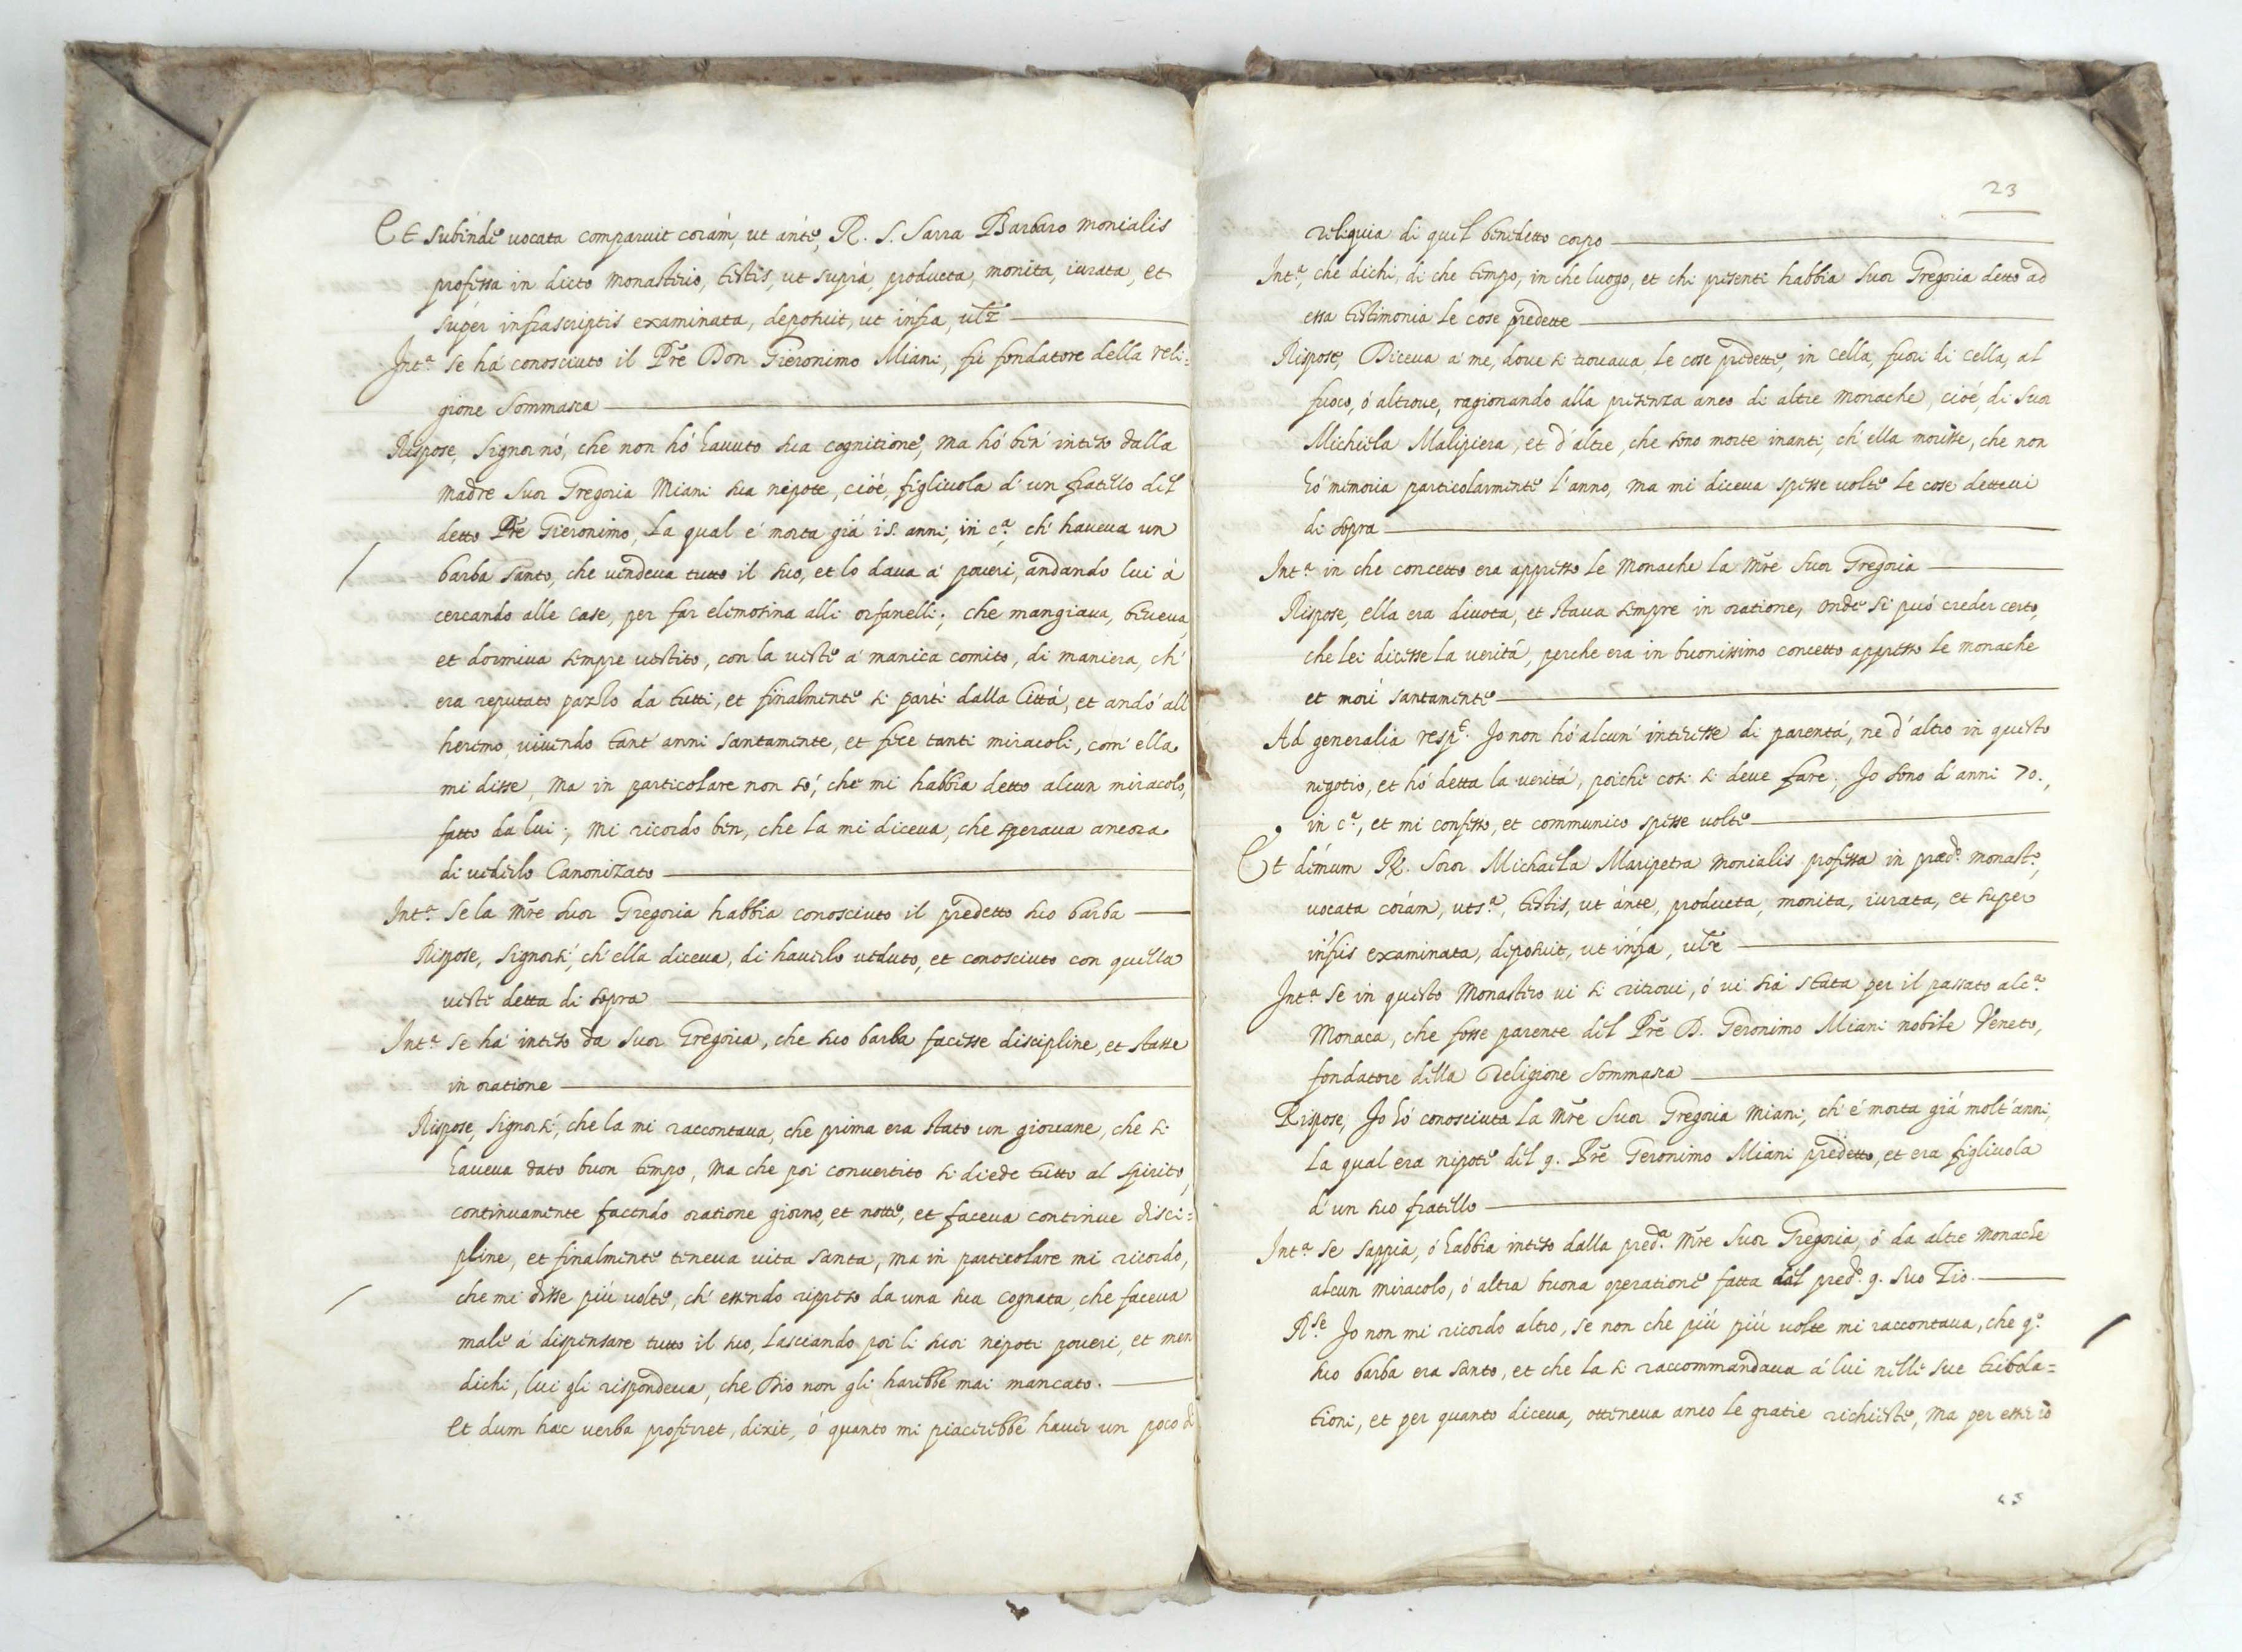 Et subinde vocata comparuit coràm, ut ante, R. S. Sarra Barbaro monialis
professa in dicto monasterio, testis, ut suprà, producta, monita, iurata, et
super infrascriptis examinata, deposuit, ut infra, vlt
Int.ª se hà conosciuto il Prē Don Gieronimo Miani, fù fondatore della reli:
gione Sommasca
Rispose, Signor nò, che non hò havuto sua cognitione, ma hò ben inteso dalla
madre Suor Gregoria Miani sua nepote, cioè, figliuola d'un fratello del
detto Prē Gieronimo, la qual è morta già 15. anni, in c.ª, ch'haveua un
barba santo, che vendeua tutto il suo, et lo daua à poueri, andando lui à
cercando alle case, per far elemosina alli orfanelli; che mangiaua, beueua,
et dormiua sempre vestito, con la veste à manica comito, di maniera, ch'
era reputato pazlo da tutti, et finalmente si partì dalla Città, et andò all'
heremo, viuendo tant'anni santamente, et fece tanti miracoli, com'ella
mi disse, ma in particolare non sò, che mi habbia detto alcun miracolo,
fatto da lui; mi ricordo ben, che la mi diceua, che speraua ancora
di vederlo Canonizato
Int.ª se la Mr̄e Suor Gregoria habbia conosciuto il predetto suo barba
Rispose, Signor sì, ch'ella diceua, di hauerlo veduto, et conosciuto con quella
veste detta di sopra
Int.ª se hà inteso da Suor Gregoria, che suo barba facesse discipline, et stasse
in oratione
Rispose, Signor sì, che la mi raccontaua, che prima era stato un giouane, che si
haueua dato buon tempo, ma che poi conuertito si diede tutto al spirito,
continuamente facendo oratione giorno, et notte, et faceua continue disci:
pline, et finalmente teneua vita santa, ma in particolare mi ricordo,
che mi disse più volte, ch'essendo ripreso da una sua cognata, che faceua
male à dispensare tutto il suo, lasciando poi li suoi nepoti poueri, et men
dichi, lui gli rispondeua, che Dio non gli harebbe mai mancato.
Et dum hæc verba proferret, dixit, ò quanto mi piacerebbe hauer un poco di
23
reliquia di quel benedetto corpo
Int.ª, che dichi, di che tempo, in che luogo, et chi presenti habbia Suor Gregoria detto ad
essa testimonia le cose predette
Rispose, Diceua à me, doue si trouaua, le cose predette, in cella, fuori di cella, al
fuoco, ò altroue, ragionando alla presenza anco di altre monache, cioè, di Suor
Michiela Malipiera, et d'altre, che sono morte inanti, ch'ella morisse, che non
hò memoria particolarmente l'anno, ma mi diceua spesse volte le cose detteui
di sopra
Int.ª in che concetto era appresso le Monache la Mr̄e Suor Gregoria
Rispose, ella era diuota, et staua sempre in oratione, onde si può creder certo,
che lei dicesse la verità, perche era in buonissimo concetto appresso le monache
et morì santamente
Ad generalia resp.t Io non hò alcun' interesse di parentà, ne d'altro in questo
negotio, et hò detta la verità, poiche così si deue fare; Io sono d'anni 70.,
in c.ª, et mi confesso, et communico spesse volte
Et démum R. Soror Michaela Maripetra monialis professa in præd.º monast.º,
vocata coràm, uts.ª, testis, ut ante, producta, monita, iurata, et super
infris examinata, deposuit, ut infra, vlt
Int.ª se in questo Monastero vi si ritroui, ò vi sia stata per il passato alc.ª
Monaca, che fosse parente del Prē D. Geronimo Miani nobile Veneto,
fondatore della Religione Sommasca
Rispose, Io hò conosciuta la Mr̄e Suor Gregoria Miani, ch'è morta già molt'anni,
la qual era nipote del q. Prē Geronimo Miani predetto, et era figliuola
d'un suo fratello
Int.ª se sappia, ò habbia inteso dalla pred.ª Mr̄e Suor Gregoria, ò da altre Monache
alcun miracolo, ò altra buona operatione fatta dal pred.º q. suo Tio.
R.se Io non mi ricordo altro, se non che più più volte mi raccontaua, che q.º
suo barba era santo, et che la si raccommandaua à lui nelle sue tribola=
tioni, et per quanto diceua, otteneua anco le gratie richieste, ma per esser io